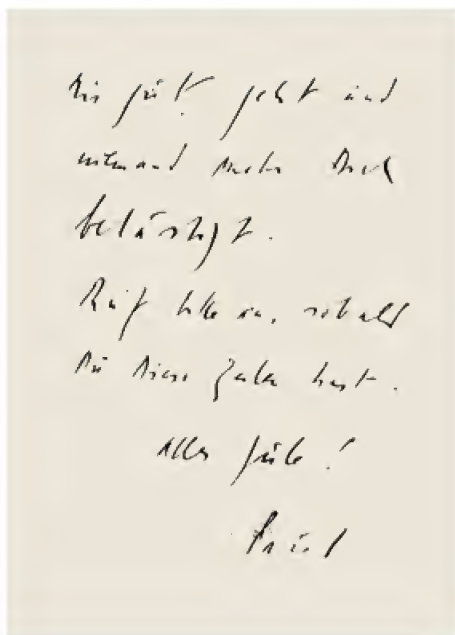 Dir gut geht und
niemand mehr Dich
belästigt.
Ruf bitte an, sobald
Du diese Zeilen hast.
Alles Gute!